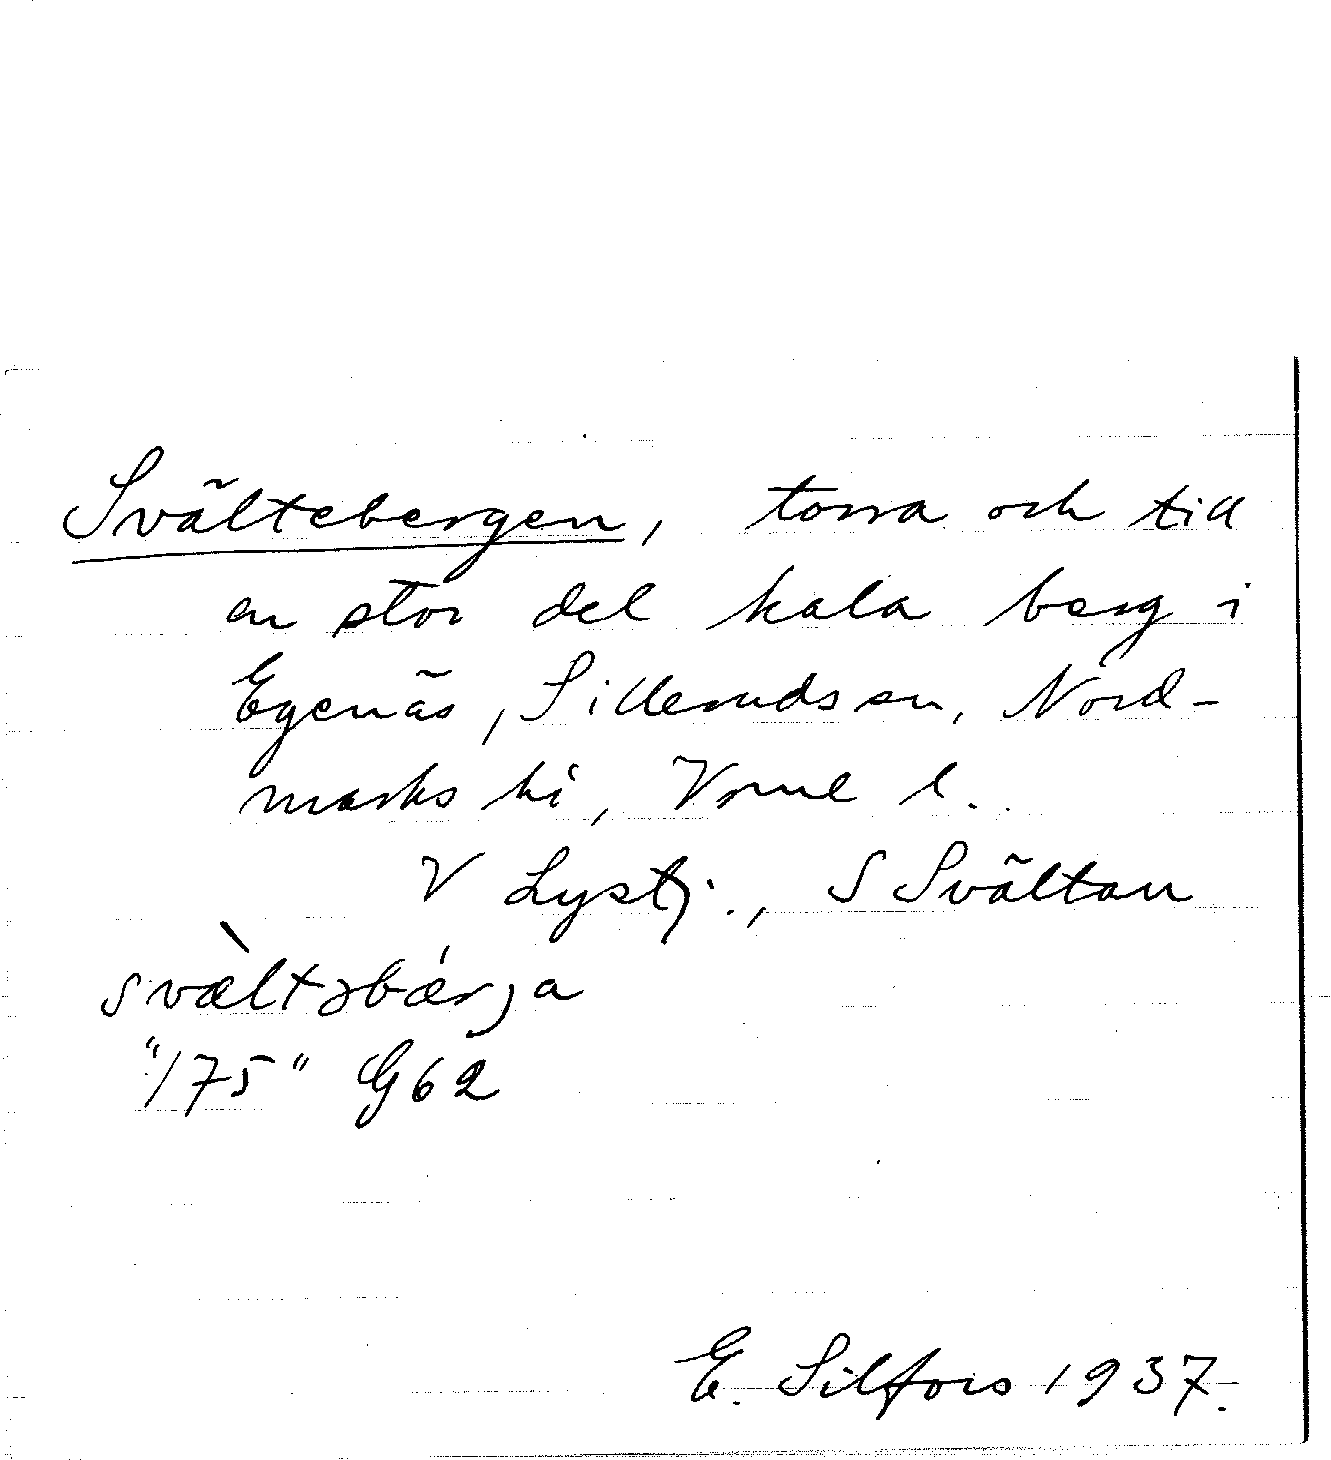 Svältebergen, torra och till
en stor del kala berg i
Egenäs, Silleruds sn, Nord-
marks hd, Vrml l.
V Lystj., S Svältan
svæ̀ltəbǽrja
"175" G62
E. Silfors 1937.